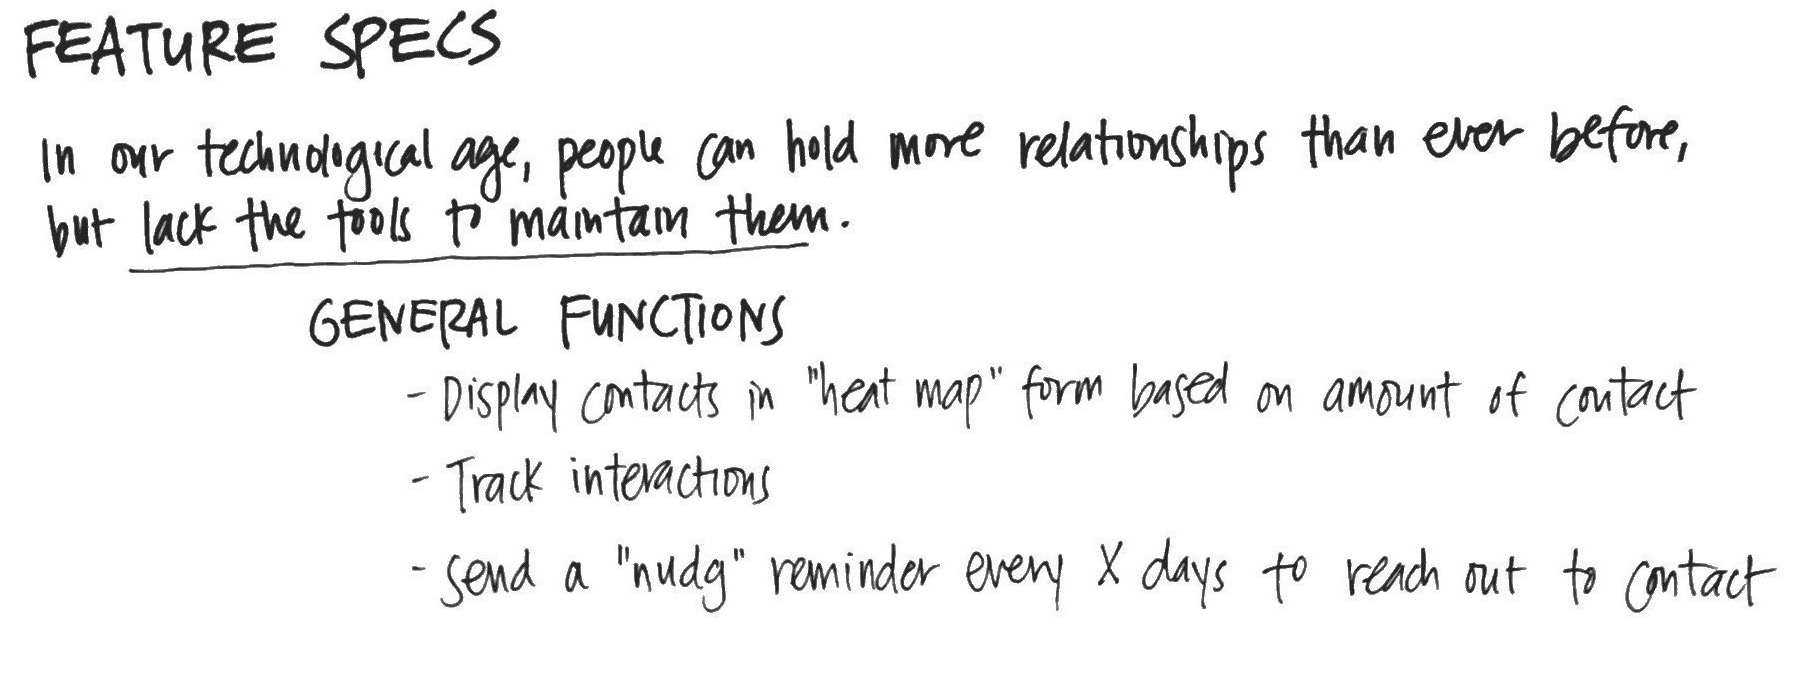 FEATURE SPECS
In our technological age, people can hold more relationships than ever before,
but lack the tools to maintain them.
GENERAL FUNCTIONS
- Display contacts in "heat map" form based on amount of contact
- Track interactions
- Send a "nudg" reminder every X days to reach out to contact